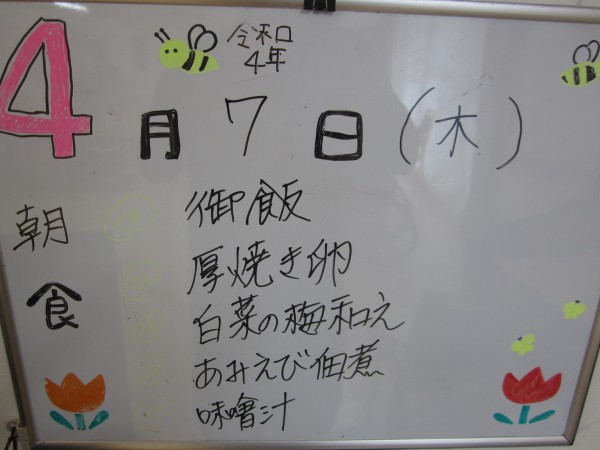 令和
4年
4月7日(木)
朝食
御飯
厚焼き卵
白菜の梅和え
あみえび佃煮
味噌汁